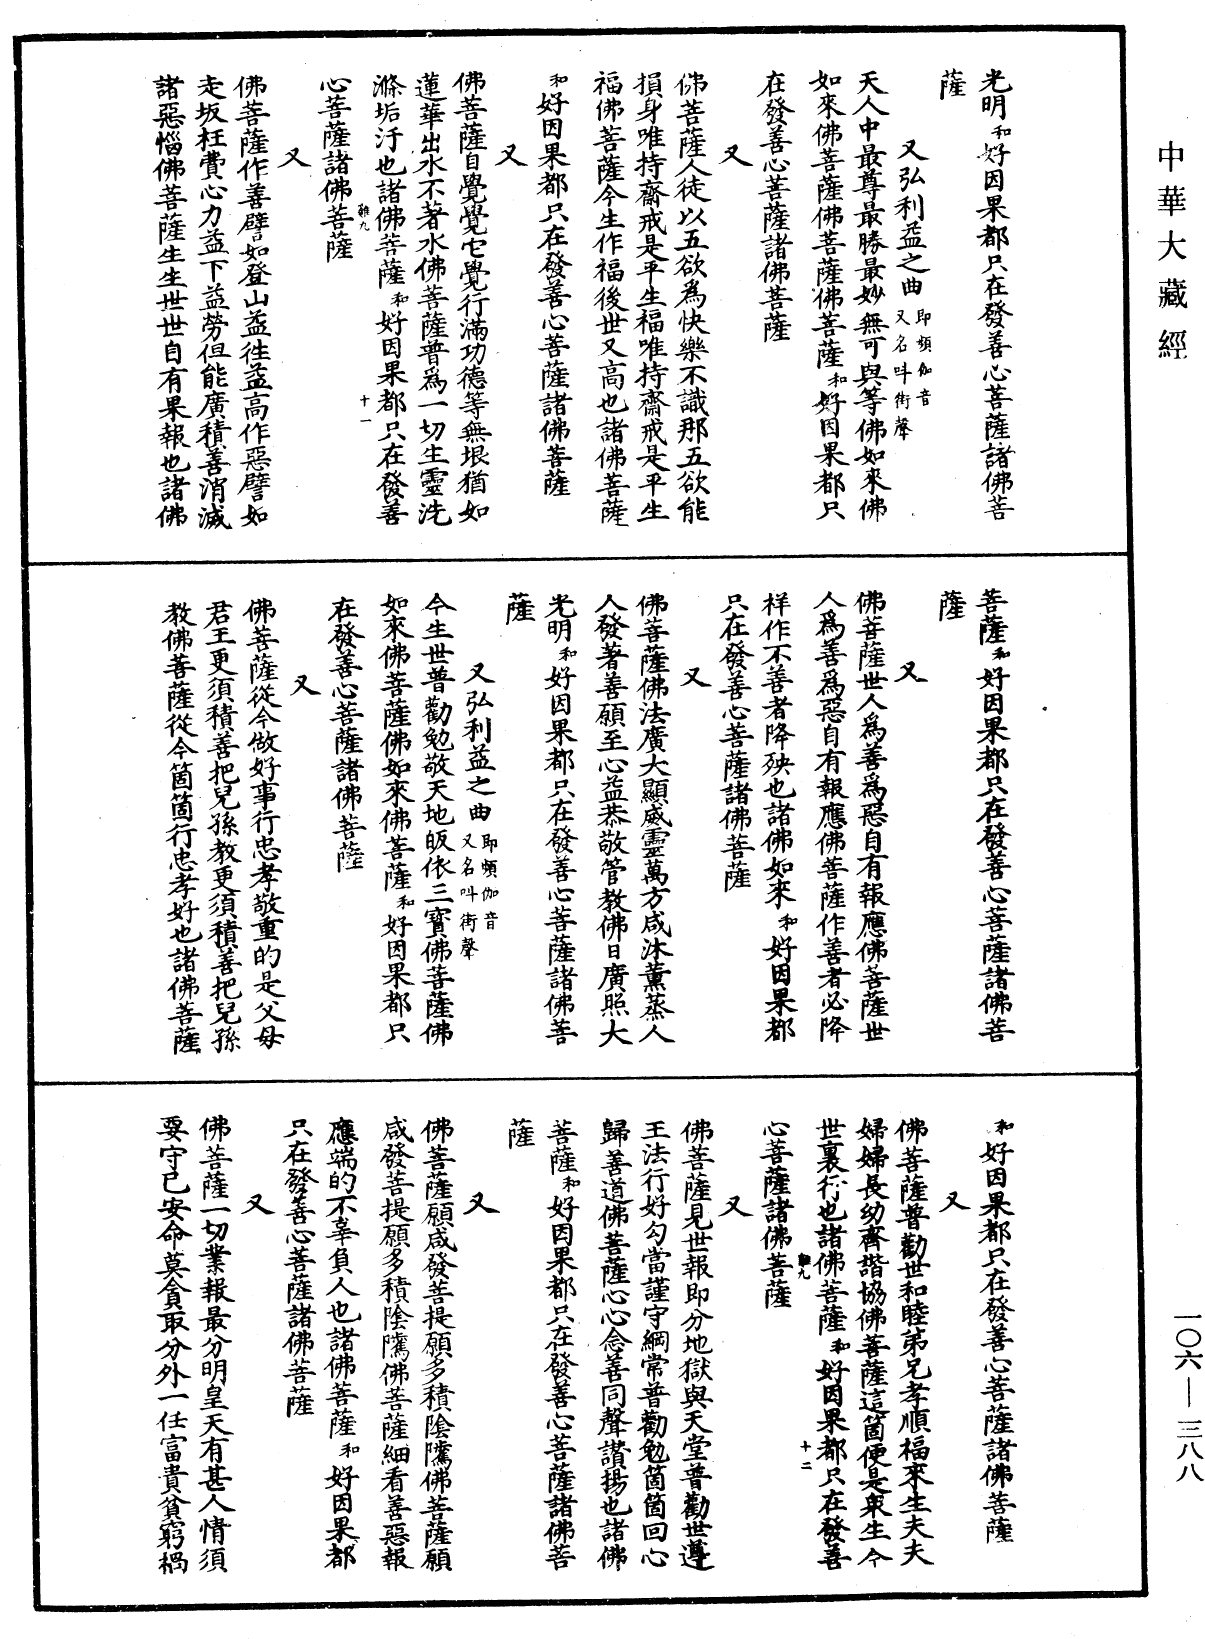 中華大藏經
光明和好因果都只在發善心菩薩諸佛菩
薩
又弘利益之曲即頻伽音又名叫街聲
天人中最尊最勝最妙無可與等佛如來佛
如來佛菩薩佛菩薩佛菩薩和好因果都只
在發善心菩薩諸佛菩薩
又
佛菩薩人徒以五欲為快樂不識那五欲能
損身唯持齋戒是平生福唯持齋戒是平生
福佛菩薩今生作福後世又高也諸佛菩薩
和好因果都只在發善心菩薩諸佛菩薩
又
佛菩薩自覺覺它覺行滿功德等無垠猶如
蓮華出水不著水佛菩薩普為一切生靈洗
滌垢汙也諸佛菩薩和好因果都只在發善
十一
心菩薩諸佛菩薩
雞九
又
佛菩薩作善譬如登山益徃益高作惡譬如
走坂枉費心力益下益勞但能廣積善消滅
諸惡惱佛菩薩生生世世自有果報也諸佛
菩薩和好因果都只在發善心菩薩諸佛菩
薩
又
佛菩薩世人為善為惡自有報應佛菩薩世
人為善為惡自有報應佛菩薩作善者必降
祥作不善者降殃也諸佛如來和好因果都
只在發善心菩薩諸佛菩薩
又
佛菩薩佛法廣大顯威靈萬方咸沐薰蒸人
人發著善願至心益恭敬管教佛日廣照大
光明和好因果都只在發善心菩薩諸佛菩
薩
又弘利益之曲即頻伽音又名叫街聲
今生世普勸勉敬天地皈依三寶佛菩薩佛
如來佛菩薩佛如來佛菩薩和好因果都只
在發善心菩薩諸佛菩薩
又
佛菩薩從今做好事行忠孝敬重的是父母
君王更須積善把兒孫教更須積善把兒孫
教佛菩薩從今箇箇行忠孝好也諸佛菩薩
和好因果都只在發善心菩薩諸佛菩薩
又
佛菩薩普勸世和睦弟兄孝順福來生夫夫
婦婦長幼齊諧協佛菩薩這箇便是眾生今
世裏行也諸佛菩薩和好因果都只在發善
十二
雞九
心菩薩諸佛菩薩
又
佛菩薩見世報即分地獄與天堂普勸世遵
王法行好勾當謹守綱常普勸勉箇箇回心
歸善道佛菩薩心心念善同聲讚揚也諸佛
菩薩和好因果都只在發善心菩薩諸佛菩
薩
又
佛菩薩願咸發菩提願多積陰騭佛菩薩願
咸發菩提願多積陰騭佛菩薩細看善惡報
應端的不辜負人也諸佛菩薩和好因果都
只在發善心菩薩諸佛菩薩
又
佛菩薩一切業報最分明皇天有甚人情須
要守已安命莫貪取分外一任富貴貧窮禍
一〇六—三八八